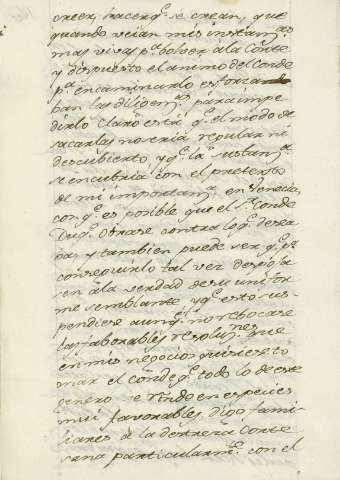 creer, hacer q.e se crean, que
quando veian mis instan.as
mas vivas p.a bolver à la Corte
y dispuesto el animo del Conde
p.a encaminarlo esforzaban
las diligen.as para impe
dirlo claro está q.e el modo de
sacarlas no seria regular ni
descubierto y q.e la sustan.a
se encubria con el pretexto
de mi importan.a en Venecia,
con q.e es posible que el S.r Conde
Duq.e obrase contra lo q.e desea
ba, y tambien puede ser q.e p.a
conseguirlo tal vez despoja
sen à la verdad de su unifor
me semblante y q.e esto sus
pendiese aunq.e no rebocase
las faborables resolu.nes que
en mis negocios quisiese to
mar el Conde q.e todo lo de este
genero e rindo en especies
mui favorables digo fami
liares à la destreza Corte
sana particularm.te con el